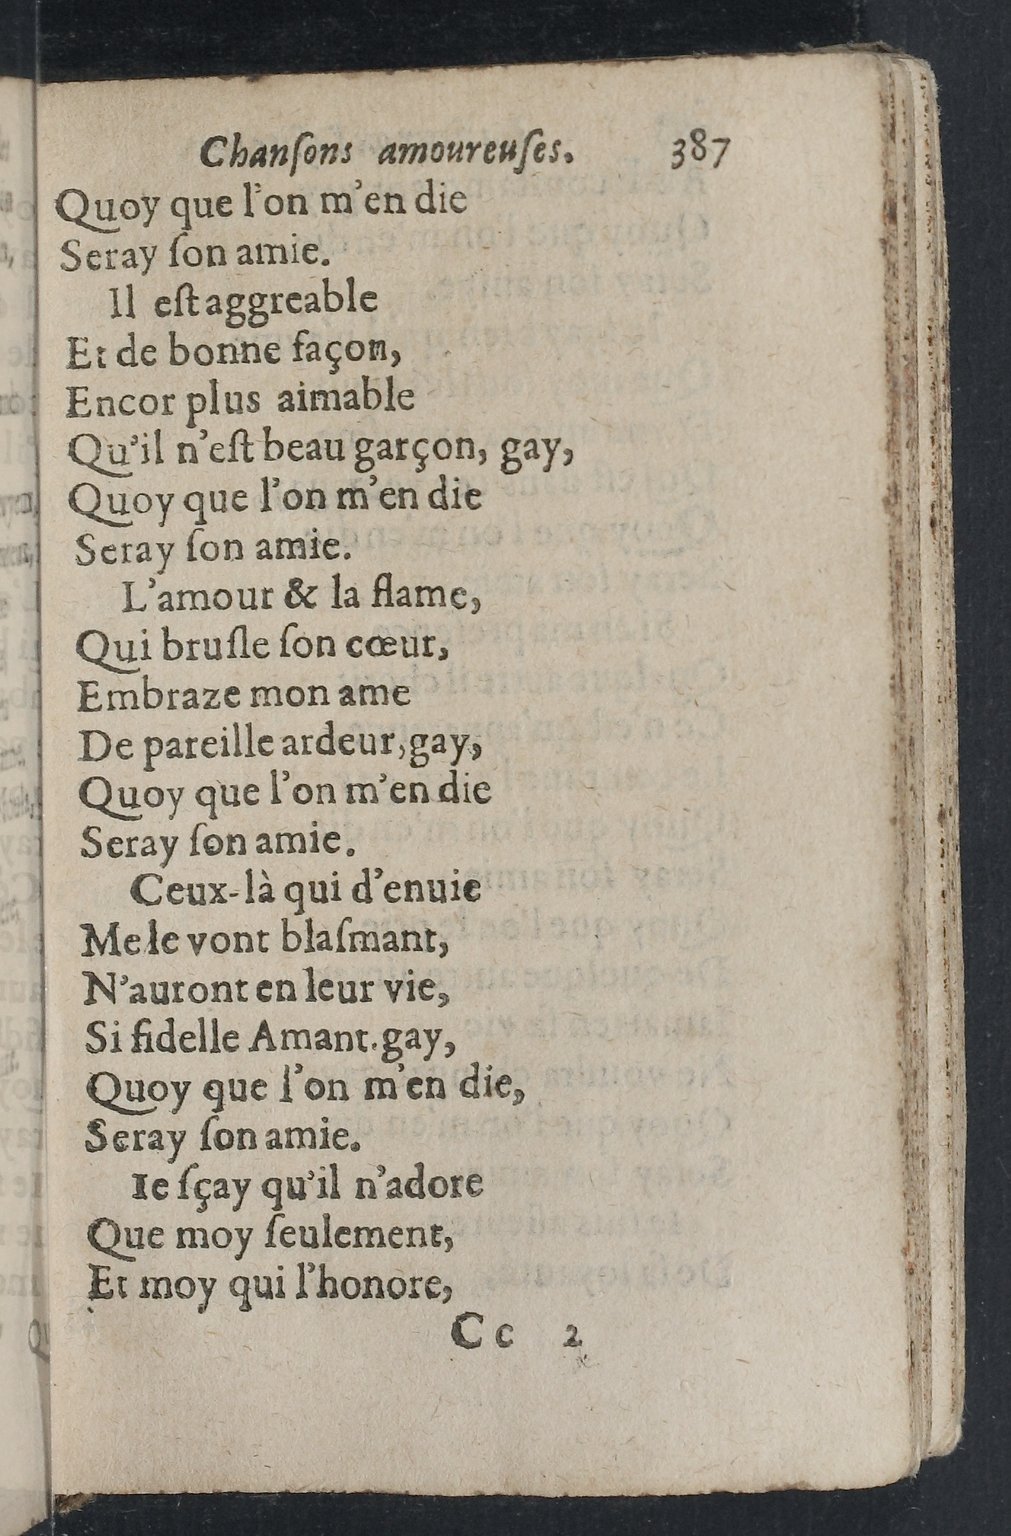 Chanſons amoureuſes. 387
Quoy que l'on m'en die
Seray ſon amie.
Il eſt aggreable
Et de bonne façon,
Encor plus aimable
Qu'il n'eſt beau garçon, gay,
Quoy que l'on m'en die
Seray ſon amie.
L'amour & la flame,
Qui bruſle ſon cœur,
Embraze mon ame
De pareille ardeur, gay,
Quoy que l'on m'en die
Seray ſon amie.
Ceux-là qui d'enuie
Me le vont blaſmant,
N'auront en leur vie,
Si fidelle Amant. gay,
Quoy que l'on m'en die,
Seray ſon amie.
Ie ſçay qu'il n'adore
Que moy ſeulement,
Et moy qui l'honore,
Cc 2